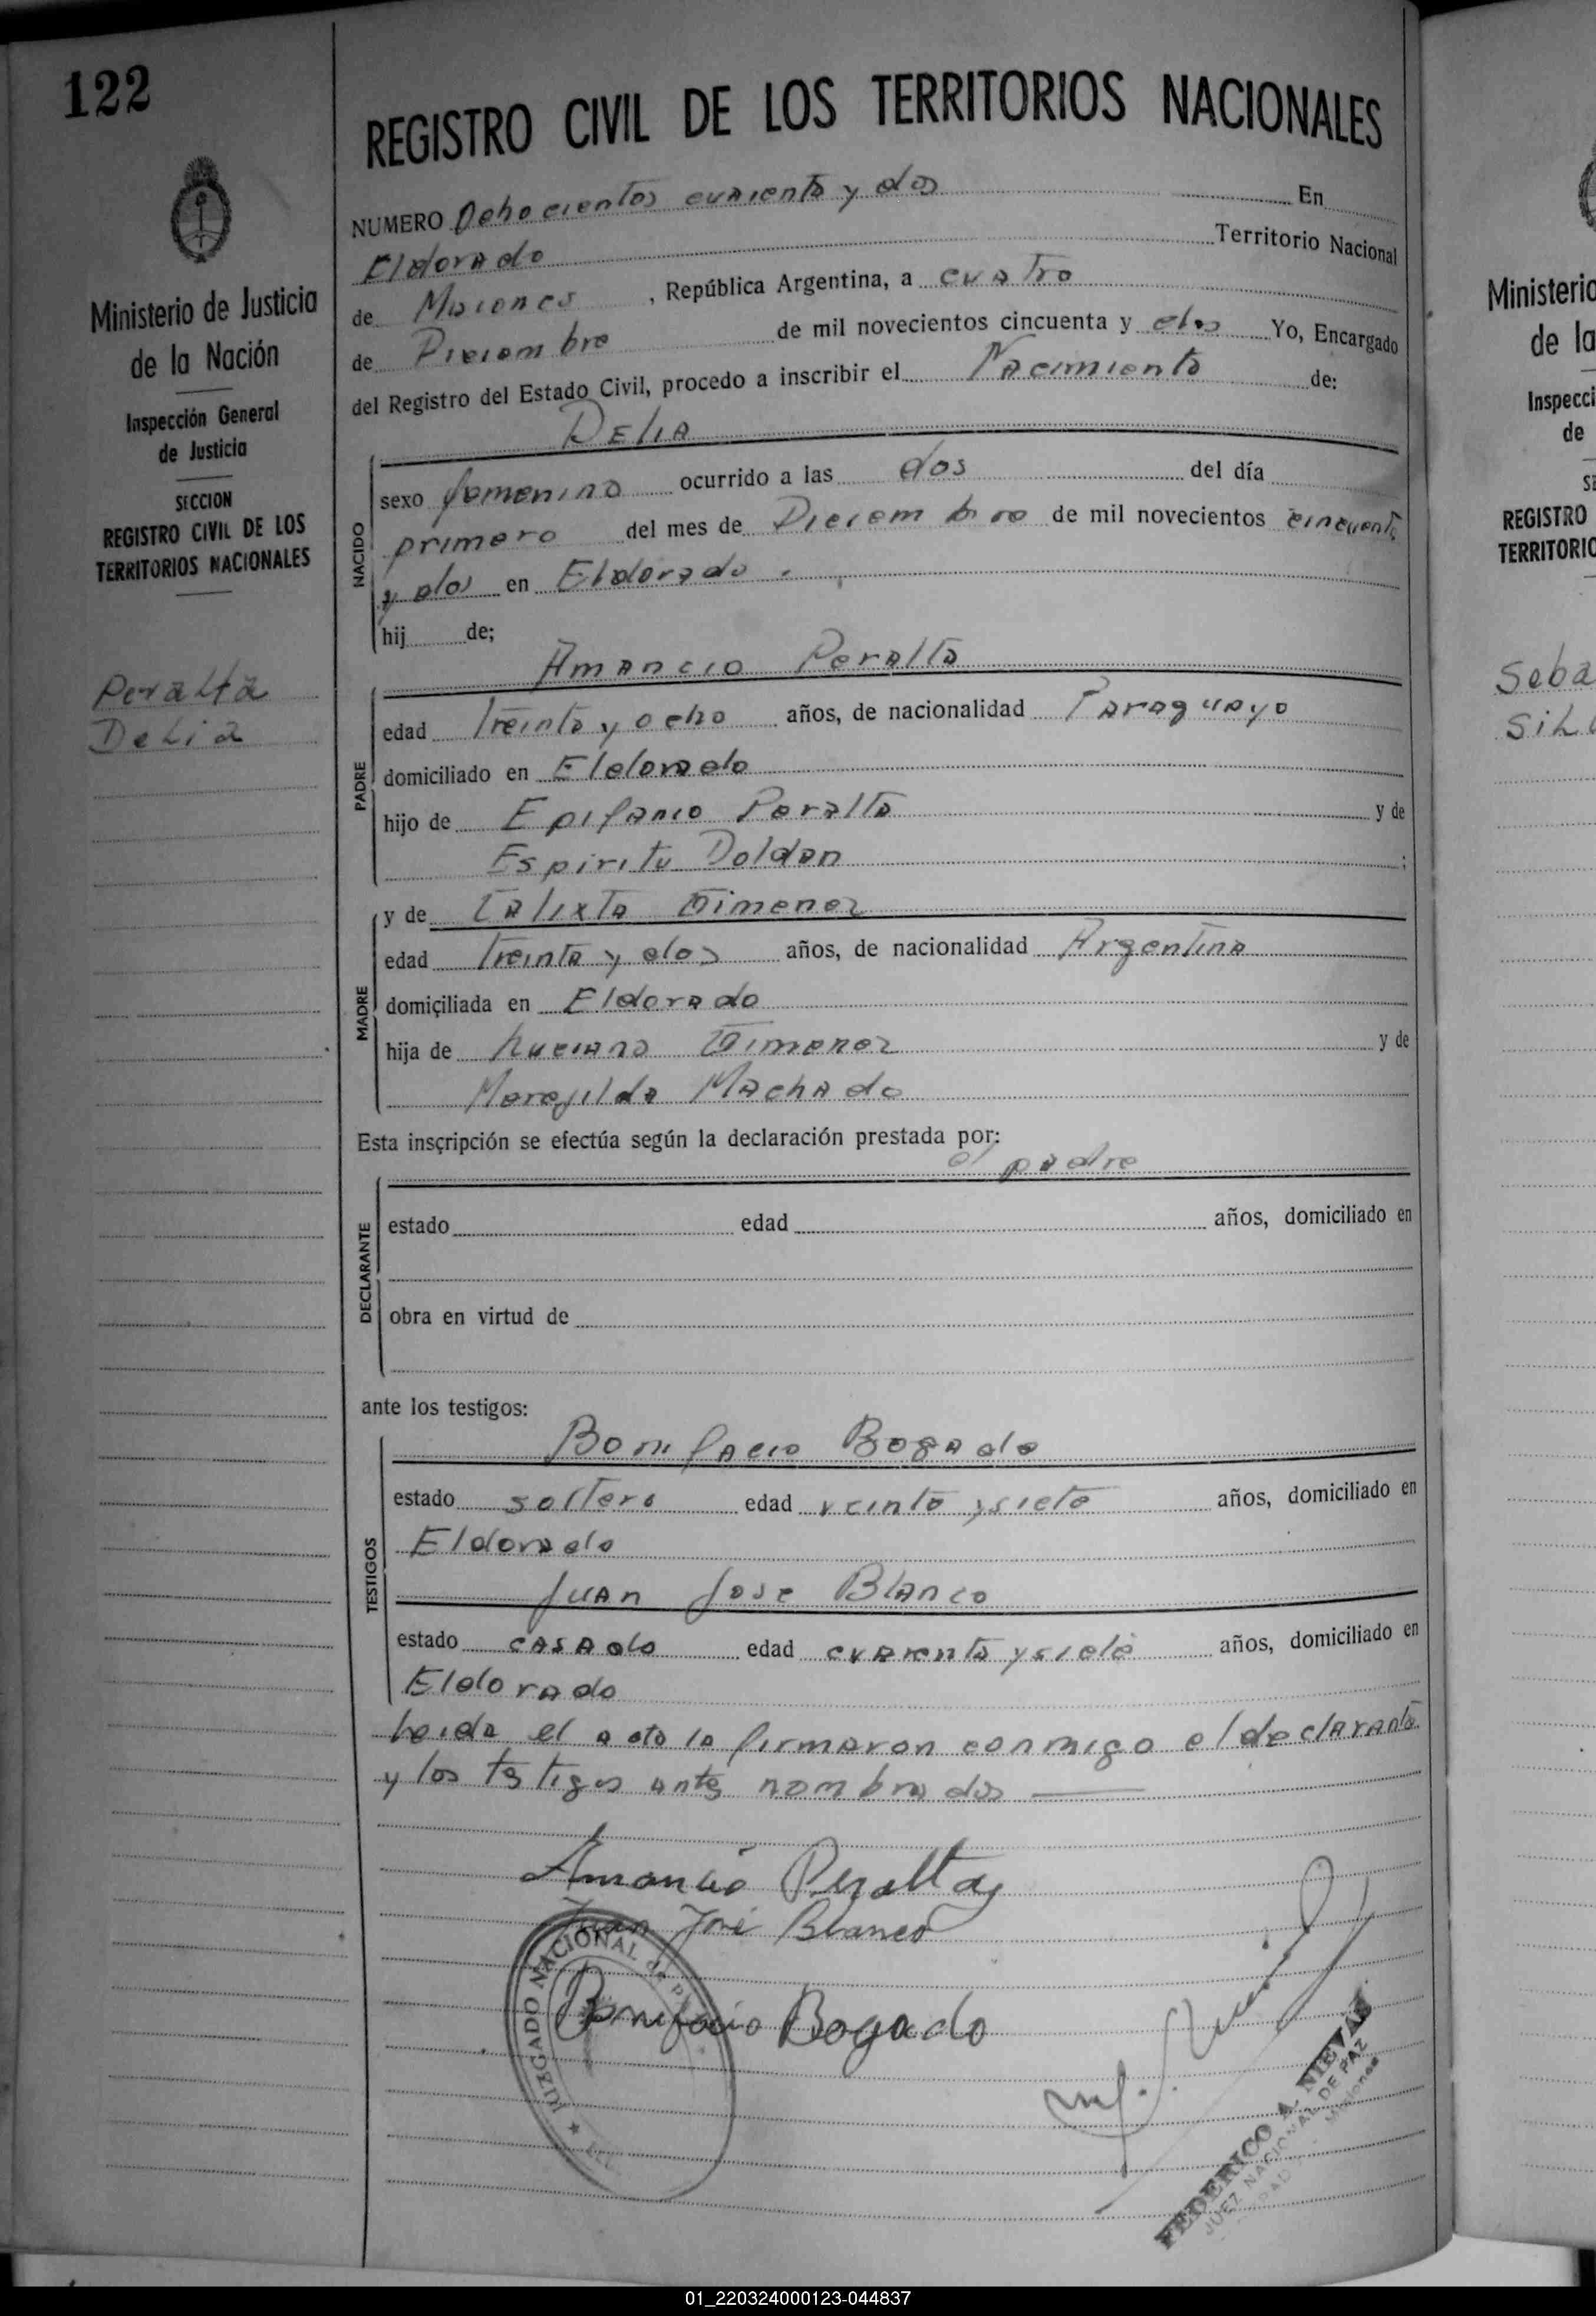 122
REGISTRO CIVIL DE LOS TERRITORIOS NACIONALES
NUMERO Ochocientos cuarenta y dos En
Eldorado Territorio Nacional
de Misiones, República Argentina, a cuatro
de Diciembre de mil novecientos cincuenta y dos Yo, Encargado
del Registro del Estado Civil, procedo a inscribir el Nacimiento de:
Delia
NACIDO
sexo femenino ocurrido a las dos del día
primero del mes de Diciembre de mil novecientos cincuenta
y dos en Eldorado.
hij de;
Amancio Peralta
PADRE
edad treinta y ocho años, de nacionalidad Paraguayo
domiciliado en Eldorado
hijo de Epifanio Peralta y de
Espiritu Doldan ;
MADRE
y de Calixta Gimenez
edad treinta y dos años, de nacionalidad Argentina
domiciliada en Eldorado
hija de Luciano Gimenez y de
Merejilda Machado
Esta inscripción se efectúa según la declaración prestada por:
el padre
DECLARANTE
estado edad años, domiciliado en
obra en virtud de
ante los testigos:
Bonifacio Bogado
TESTIGOS
estado soltero edad veinte y siete años, domiciliado en
Eldorado
Juan Jose Blanco
estado casado edad cuarenta y siete años, domiciliado en
Eldorado
Leida el acta la firmaron conmigo el declarante
y los testigos antes nombrados
Amancio Peralta
Juan José Blanco
Bonifacio Bogado
JUZGADO NACIONAL DE P
FEDERICO A. NIEVAS
JUEZ NACIONAL DE PAZ
Misiones
Ministerio de Justicia
de la Nación
Inspección General
de Justicia
SECCION
REGISTRO CIVIL DE LOS
TERRITORIOS NACIONALES
Peralta
Delia
Ministerio
de la
Inspecci
de
S
REGISTRO
TERRITORIO
Seba
Sil
01_220324000123-044837